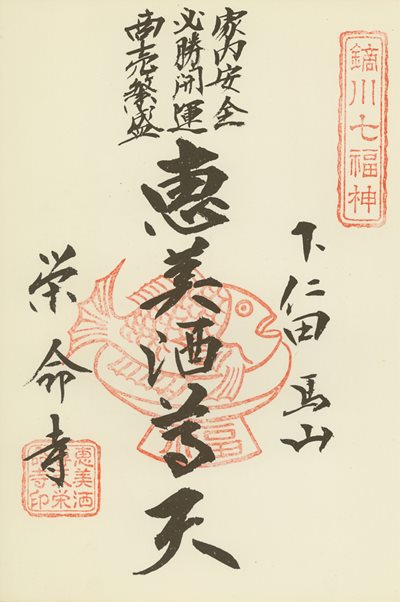 鏑川七福神
下仁田 馬山
家内安全
必勝開運
商売繁盛
恵美酒尊天
福
栄命寺
恵美酒
栄
寺印